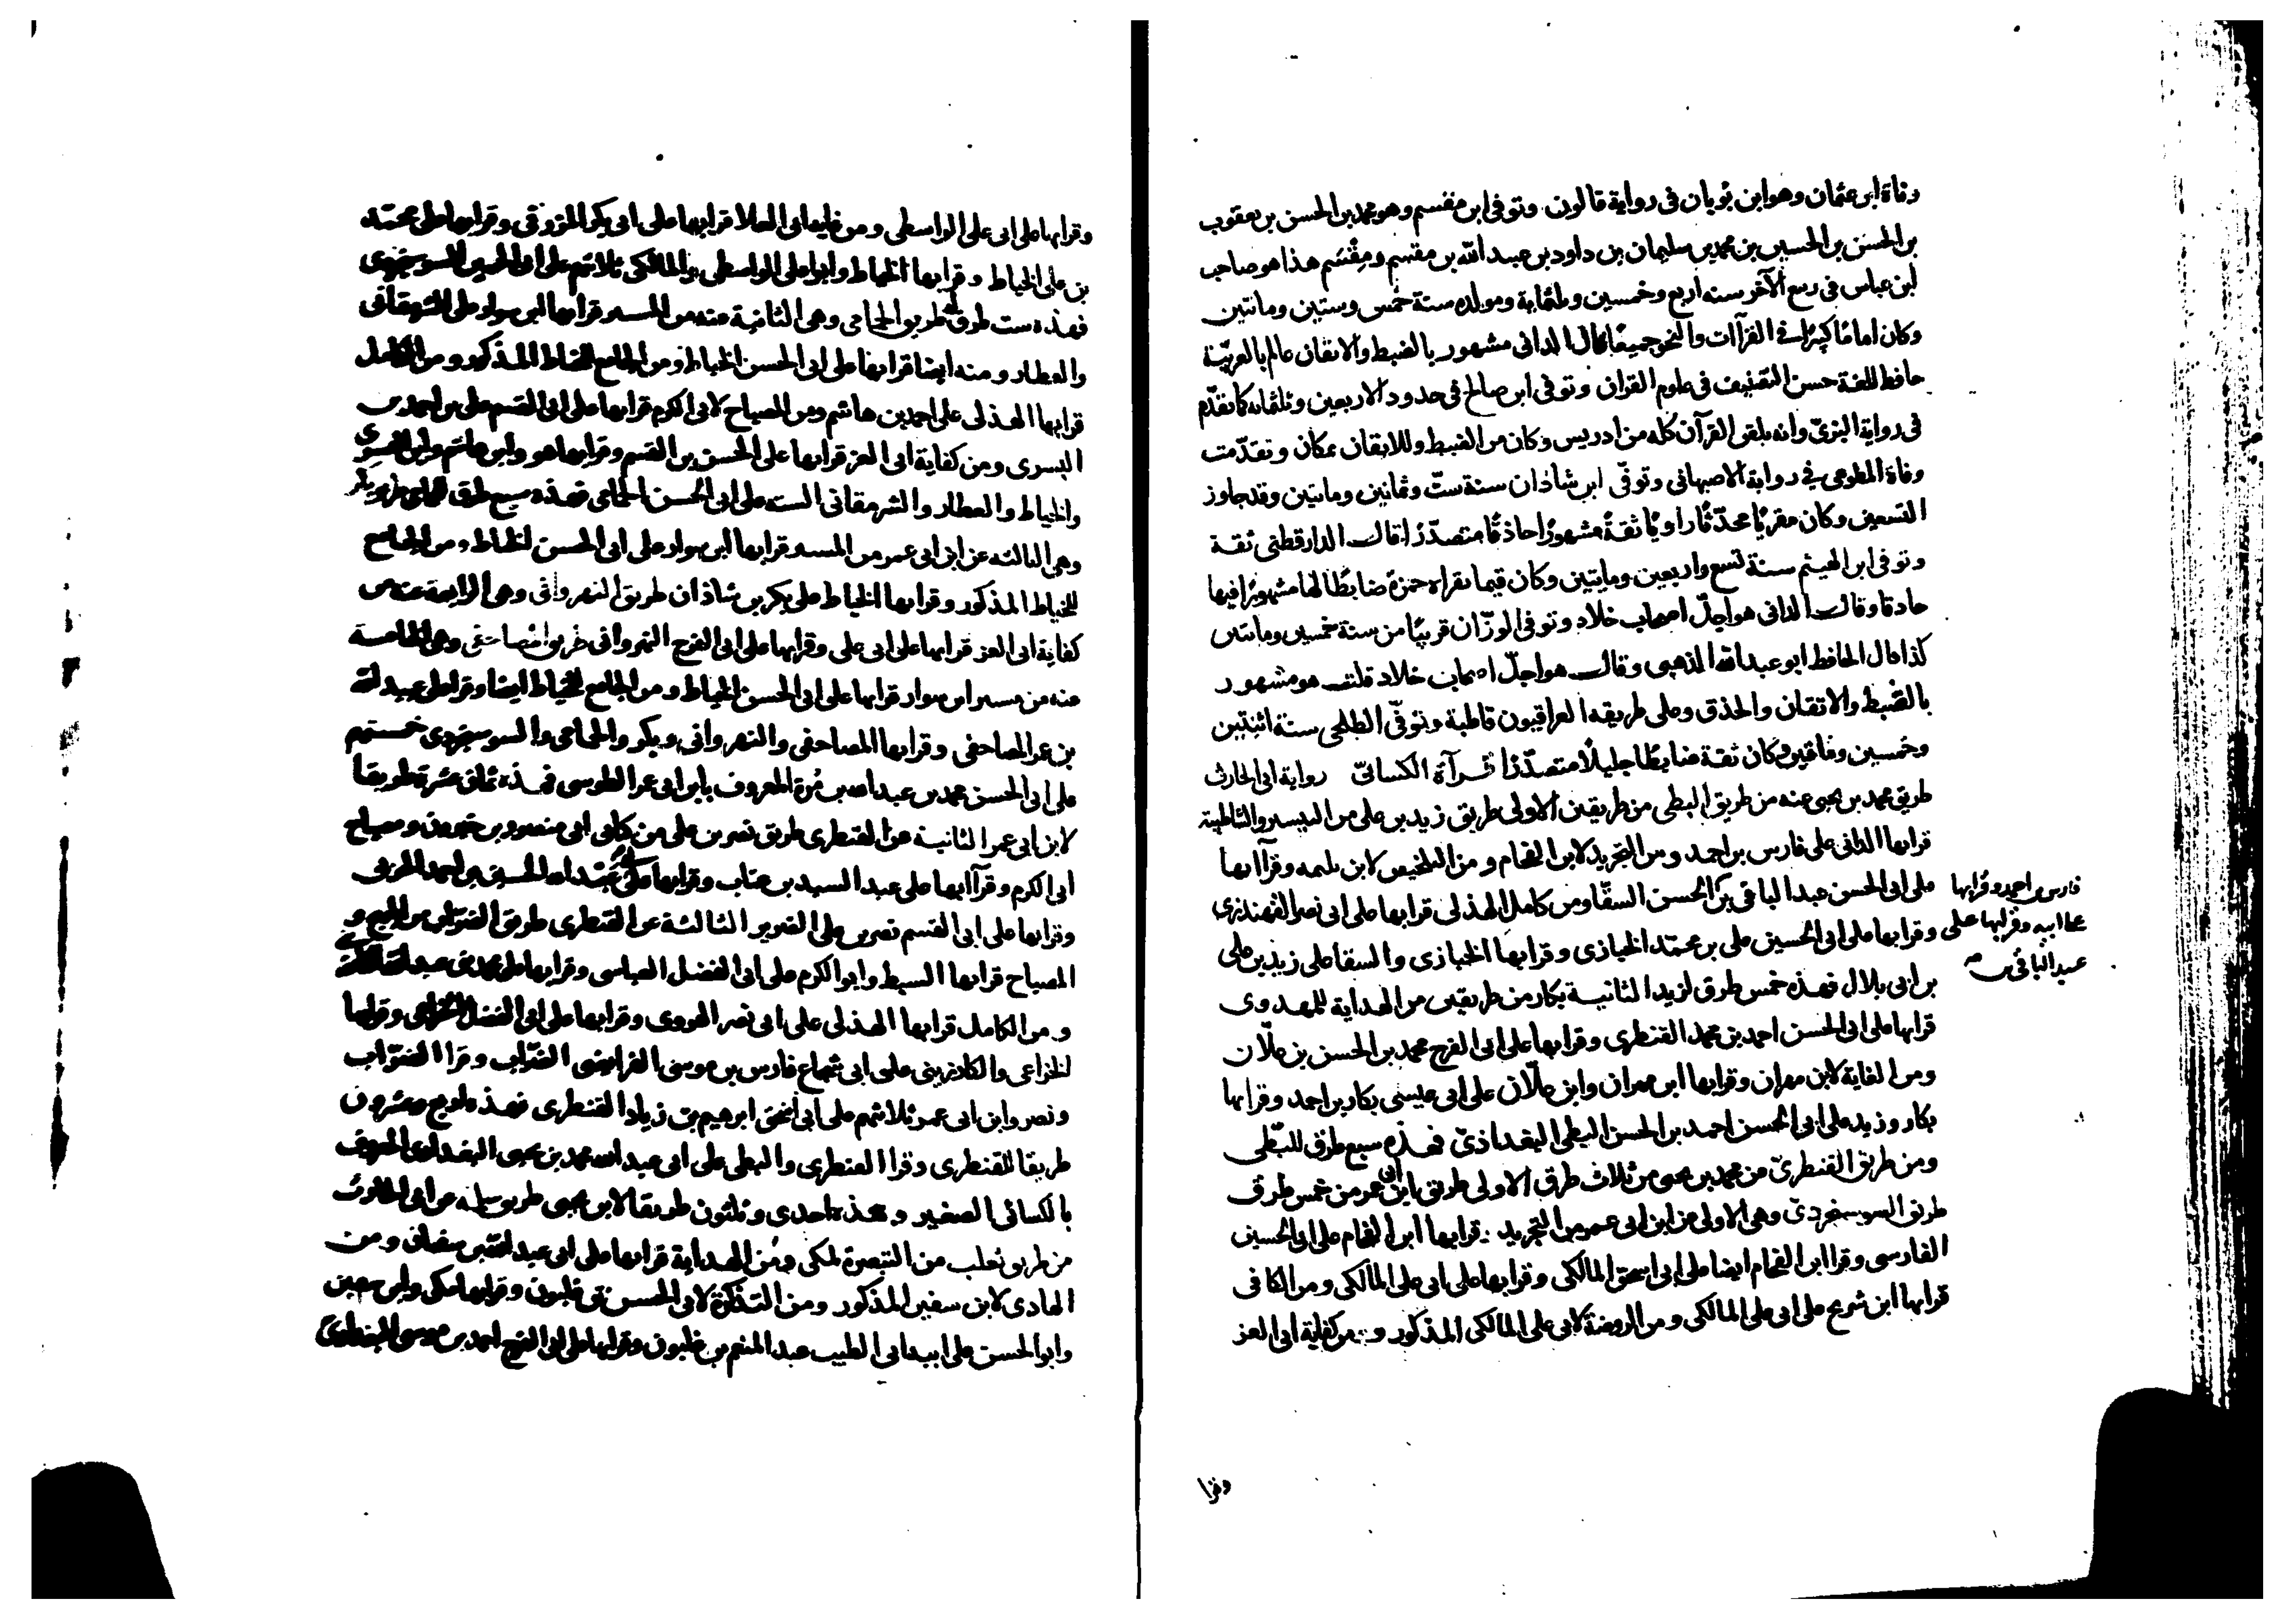 وفاة ابن عثمان وهو ابن بُويان في رواية قالون وتوفي ابن مقسم وهو محمد بن الحسن بن يعقوب
بن الحسن بن الحسين بن محمد بن سليمان بن داود بن عبيد الله بن مقسم ومِقْسَم هذا هو صاحب
ابن عباس في ربيع الآخر سنة اربع وخمسين وثلثماية ومولده سنة خمس وستين ومائتين
وكان امامًا كبيرًا في القرآات والنحو جميعًا قال الداني مشهور بالضبط والاتقان عالم بالعربيّة
حافظ للغة حسن التصنيف في علوم القران وتوفي ابن صالح في حدود الاربعين وثلثمائه كما تقدّم
في رواية البزيّ وانه تلقى القرآن كله من ادريس وكان من الضبط والاتقان بمكان وتقدّمت
وفاة المطوعي في رواية الاصبهاني وتوفّي ابن شاذان سنة ستّ وثمانين ومايتين وقد جاوز
التسعين وكان مقريًا محدّثًا راويًا ثقةً مشهورًا حاذقًا متصدّرًا قال الدارقطني ثقة
وتوفي ابن الهيثم سنة تسع واربعين ومايتين وكان قيما بقراة حمزة ضابطًا لها مشهورًا فيها
حاذقا وقال الداني هو اجلّ اصحاب خلاد وتوفي الوزّان قريبًا من سنة خمسين ومايتين
كذا قال الحافظ ابو عبد الله الذهبي وقال هو اجلّ اصحاب خلاد قلت هو مشهور
بالضبط والاتقان والحذق وعلى طريقه العراقيون قاطبة وتوفّي الطلحي سنة اثنتين
وخمسين ومائتين وكان ثقة ضابطًا جليلًا متصدّرًا قرآة الكسائيّ رواية ابي الحارث
طريق محمد بن يحيى عنه من طريق البطي من طريقين الاولى طريق زيد بن علي من التيسير والشاطبية
قرا بها الداني على فارس بن احمد ومن التجريد لابن الفحام ومن التلخيص لابن بليمه وقرآا بها
على ابي الحسن عبد الباقي بن الحسن السقّا ومن كامل الهذلي قرا بها على ابي نصر القهندزي
فارس بن احمد وقرا بها
على ابيه وقرا بها على
عبد الباقي بن صح
وقرا بها على ابي الحسين علي بن محمّد الخبازي وقرا بها الخبازي والسقا على زيد بن علي
بن ابي بلال فهذه خمس طرق لزيد الثانية بكار من طريقين من الهداية للمهدوي
قرا بها على ابي الحسن احمد بن محمد القنطري وقرا بها على ابي الفرج محمد بن الحسن بن علّان
ومن الغاية لابن مهران وقرا بها ابن مهران وابن علّان على ابي عيسى بكار بن احمد وقرا بها
بكار وزيد على ابي الحسن احمد بن الحسن البطي البغداذيّ فهذه سبع طرق للبّطي
ومن طريق القنطريّ عن محمد بن يحيى من ثلاث طرق الاولى طريق ابن ابي عمر من خمس طرق
طريق السوسنجرديّ وهي الاولى عن ابن ابي عمر من التجريد قرا بها ابن الفحام على ابي الحسين
الفارسي وقرا ابن الفحام ايضا على ابي اسحق المالكي وقرا بها على ابي علي المالكي ومن الكافي
قرا بها ابن شريح على ابي علي المالكي ومن الروضة لابي علي المالكي المذكور ومن كفاية ابي العز
وقرا
وقرا بها على ابي علي الواسطي ومن غاية ابي العلا قرا بها على ابي بكر المزرفي وقرا بها على محمّد
بن علي الخياط وقرا بها الخياط وابو علي الواسطي والمالكي ثلاثتهم على ابي الحسين السوسنجردي
فهذه ست طرق له طريق الحمامي وهي الثانية عنه من المستنير قرا بها ابن سوار على الشرمقاني
والعطار ومنه ايضا قرا بها على ابي الحسن الخياط ومن الجامع للخياط المذكور ومن الكامل
قرا بها الهذلي على احمد بن هاشم ومن المصباح لابي الكرم قرا بها على ابي القسم علي بن احمد بن
البسري ومن كفاية ابي العز قرا بها على الحسن بن القسم وقرا بها هو وابن هاشم وابن البسري
والخياط والعطار والشرمقاني الستة على ابي الحسن الحمامي فهذه سبع طرق للحمامي طريق بكر
وهي الثالثه عن ابن ابي عمر من المستنير قرا بها ابن سوار على ابي الحسن الخياط ومن الجامع
للخياط المذكور وقرا بها الخياط على بكر بن شاذان طريق النهرواني وهي الرابعة عنه من
كفاية ابي العز قرا بها على ابي علي وقرا بها على ابي الفرج النهرواني طريق المصاحفي وهي الخامسة
عنه من مستنير ابن سوار قرا بها على ابي الحسن الخياط ومن الجامع للخياط ايضا وقرا على عبيد الله
بن عمر المصاحفي وقرا بها المصاحفي والنهرواني وبكر والحمامي والسوسنجردي خمستهم
على ابي الحسن محمد بن عبد الله بن مُرة المعروف بابن ابي عمر الطوسي فهذه ثماني عشرة طريقا
لابن ابي عمر الثانية عن القنطري طريق نصر بن علي من كتابي ابي منصور بن خيرون ومصباح
ابي الكرم وقرآا بها على عبد السيد بن عتاب وقرا بها على ابي عبد الله الحسين بن احمد الحربي
وقرا بها على ابي القسم نصر بن علي الضرير الثالثة عن القنطري طريق الضرّاب من المبهج و
المصباح قرا بها السبط وابو الكرم على ابي الفضل العباسي وقرا بها على محمد بن عبد الله
ومن الكامل قرا بها الهذلي على ابي نصر الهروي وقرا بها على ابي الفضل الخزاعي وقرا بها
الخزاعي والكارزيني على ابي شجاع فارس بن موسى الفرايضي الضرّاب وقرا الضرّاب
ونصر وابن ابي عمر ثلاثتهم على ابي اسحق ابرهيم بن زياد القنطري فهذه اربع وعشرون
طريقا للقنطري وقرا القنطري والبطي على ابي عبد الله محمد بن يحيى البغدادي المعروف
بالكسائي الصغير وهذه احدى وثلثون طريقا لابن يحيى طريق سلمه عن ابي الحارث
من طريق ثعلب من التبصرة لمكي ومن الهداية قرا بها على ابي عبد الله بن سفيان ومن
الهادي لابن سفين المذكور ومن التذكرة لابي الحسن بن غلبون وقرا بها مكي وابن سفين
وابو الحسن على ابيه ابي الطيب عبد المنعم بن غلبون وقرا بها على ابي الفرج احمد بن موسى البغدادي